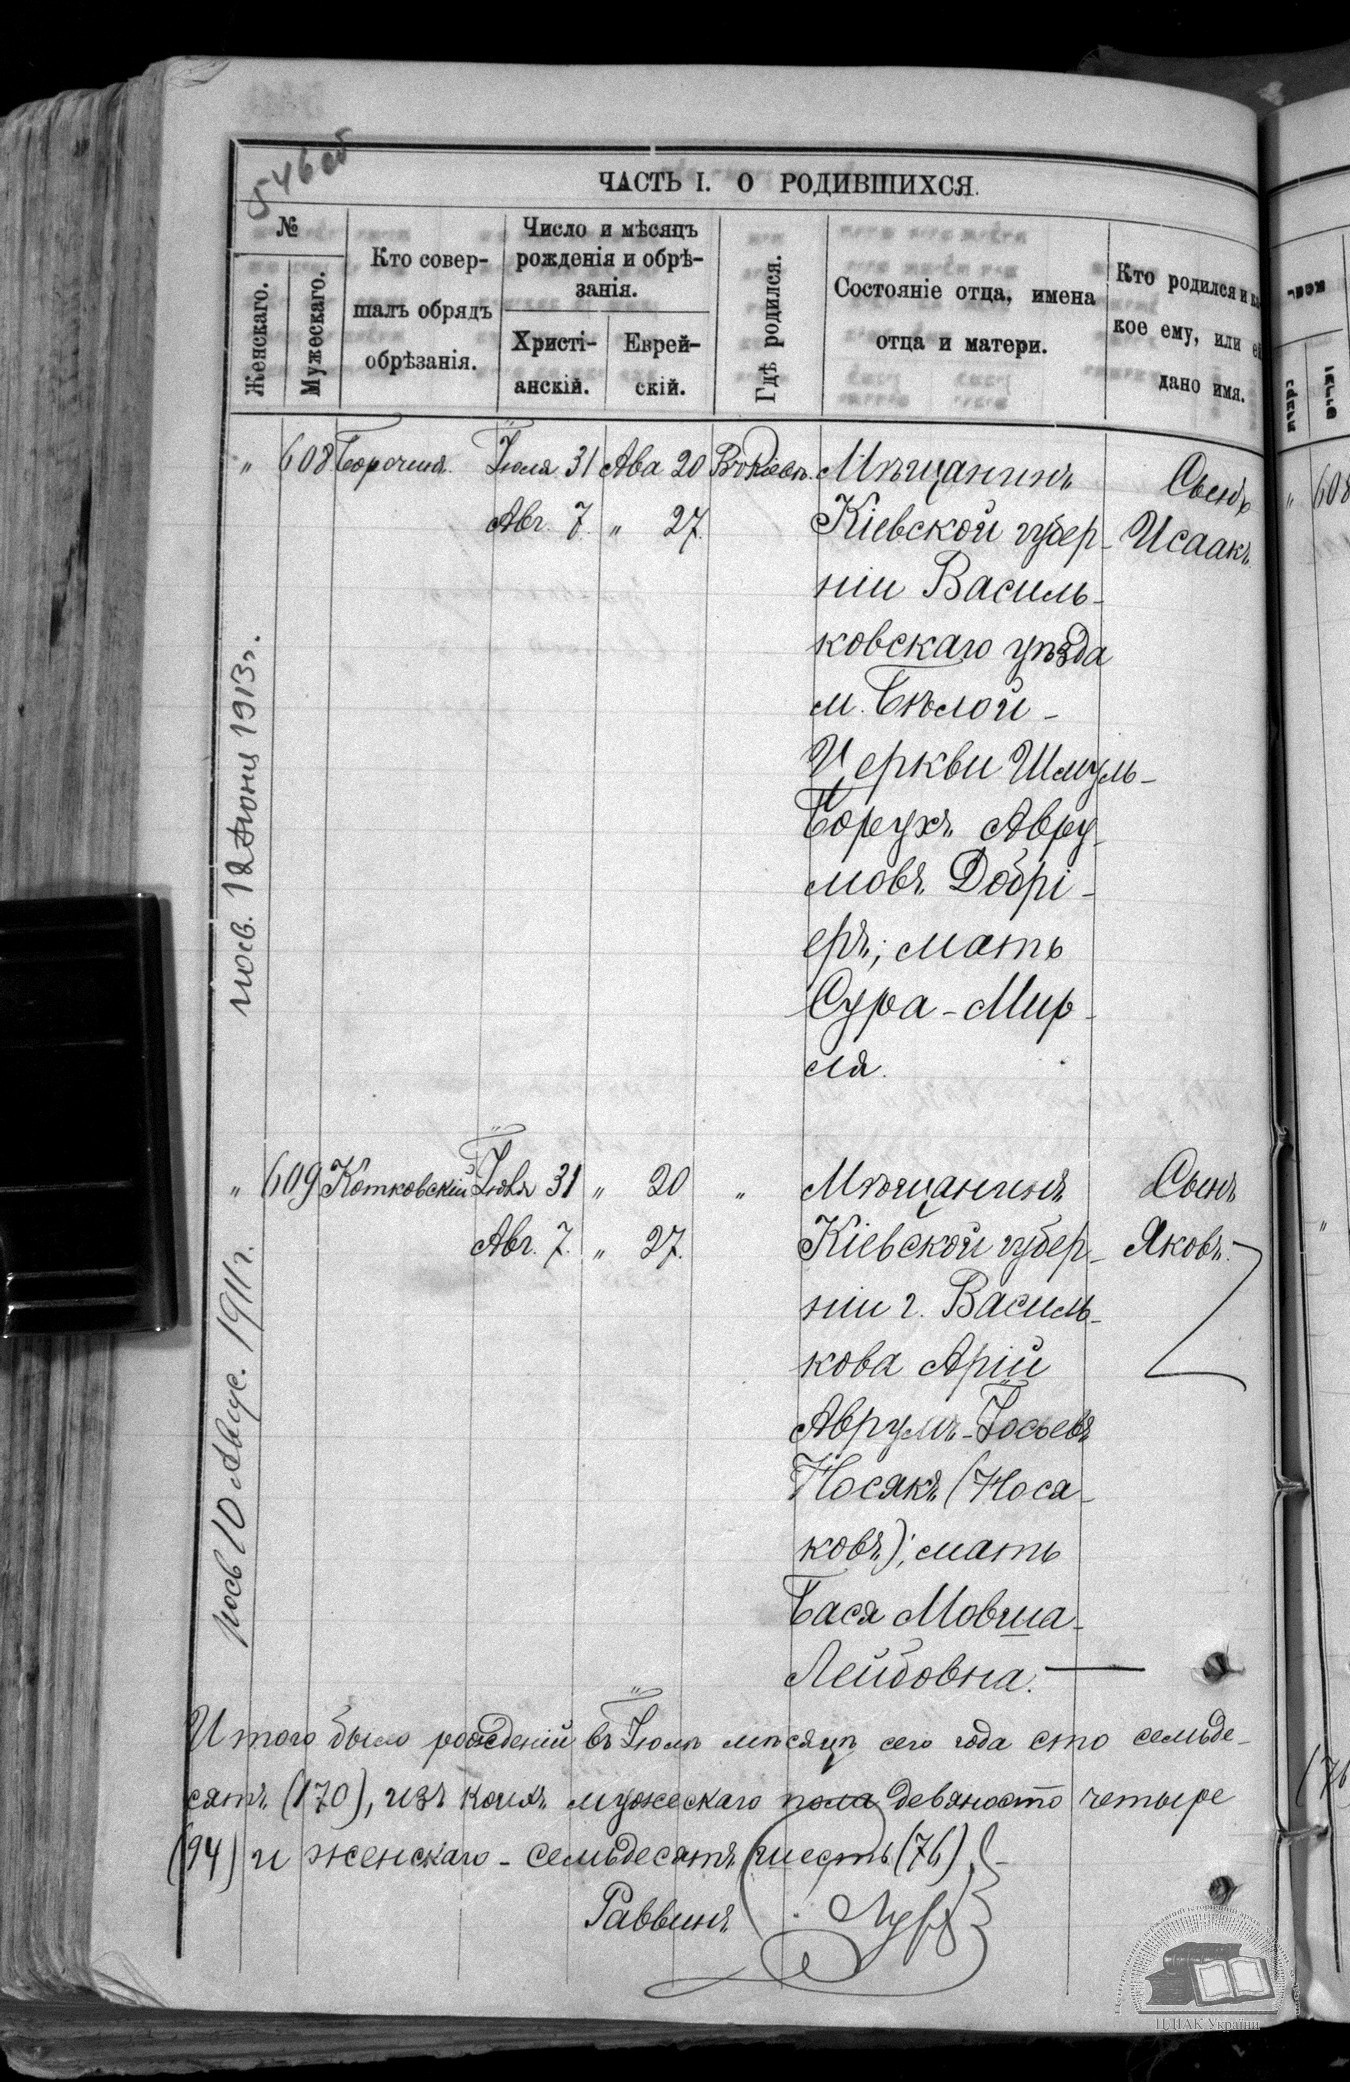 546 об
ЧАСТЬ I. О РОДИВШИХСЯ.
№
Женскаго.
Мужескаго.
Кто совер-
шалъ обрядъ
обрѣзанія.
Число и мѣсяцъ
рожденія и обрѣ-
занія.
Христі-
анскій.
Еврей-
скій.
Гдѣ родился.
Состояніе отца, имена
отца и матери.
Кто родился и ка
кое ему, или ей
дано имя.
„ 608 Борочинъ. Іюля 31 Ава 20 Въ Кіевѣ. Мѣщанинъ Сынъ
Авг. 7. „ 27. Кіевской губер- Исаакъ.
ніи Василь-
ковскаго уѣзда
м. Бѣлой-
Церкви Шмуль-
Борухъ Авру-
мовъ Добрі-
еръ; мать
Сура-Мир-
ля.
12 Июня 1913г.
„ 609 Котковскій Іюля 31 „ 20 „ Мѣщанинъ Сынъ
Авг. 7. „ 27. Кіевской губер- Яковъ.
ніи г. Василь-
кова Арій
Аврумъ-Іосьевъ
Носякъ (Нося-
ковъ); мать
Бася Мовша-
Лейбовна.
10 Август. 1911г.
Итого было рожденій въ Іюлѣ мѣсяцѣ сего года сто семьде-
сятъ (170), изъ коихъ мужескаго пола девяносто четыре
(94) и женскаго - семьдесятъ шесть (76)
Раввинъ
ЦДІАК України